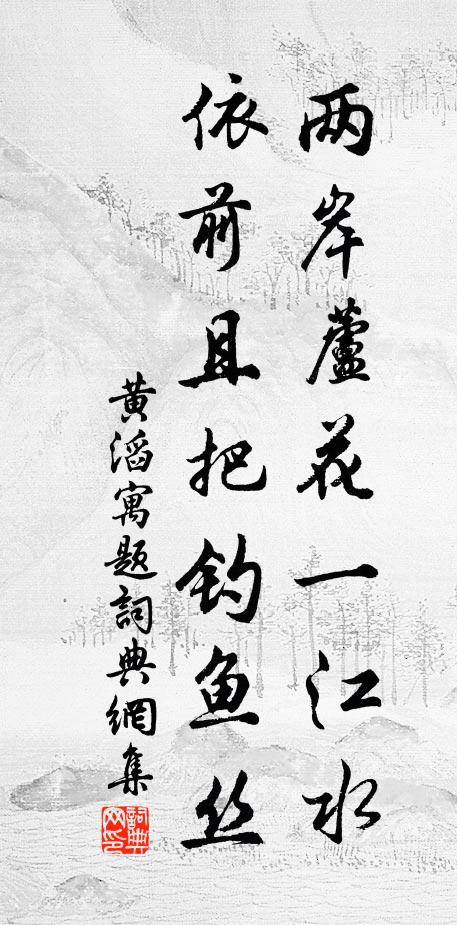 两岸蘆花一江水
依前且把钓鱼丝
黄滔寓题詞典網集
詞典
网印